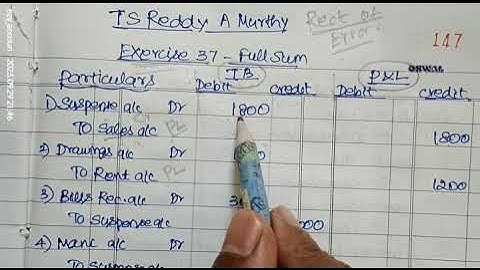 TS Reddy A Murthy
Rect of Error
147
Exercise 37 - Full Sum
ONWAR
Particulars T.B. P&L
Debit credit Debit credit
1) Suspense a/c Dr 1800
To Sales a/c PL 1800
2) Drawings a/c Dr
To Rent a/c PL 1200
3) Bills Rec. a/c Dr
To Suspense a/c
4) Manc a/c Dr
To Suspense a/c